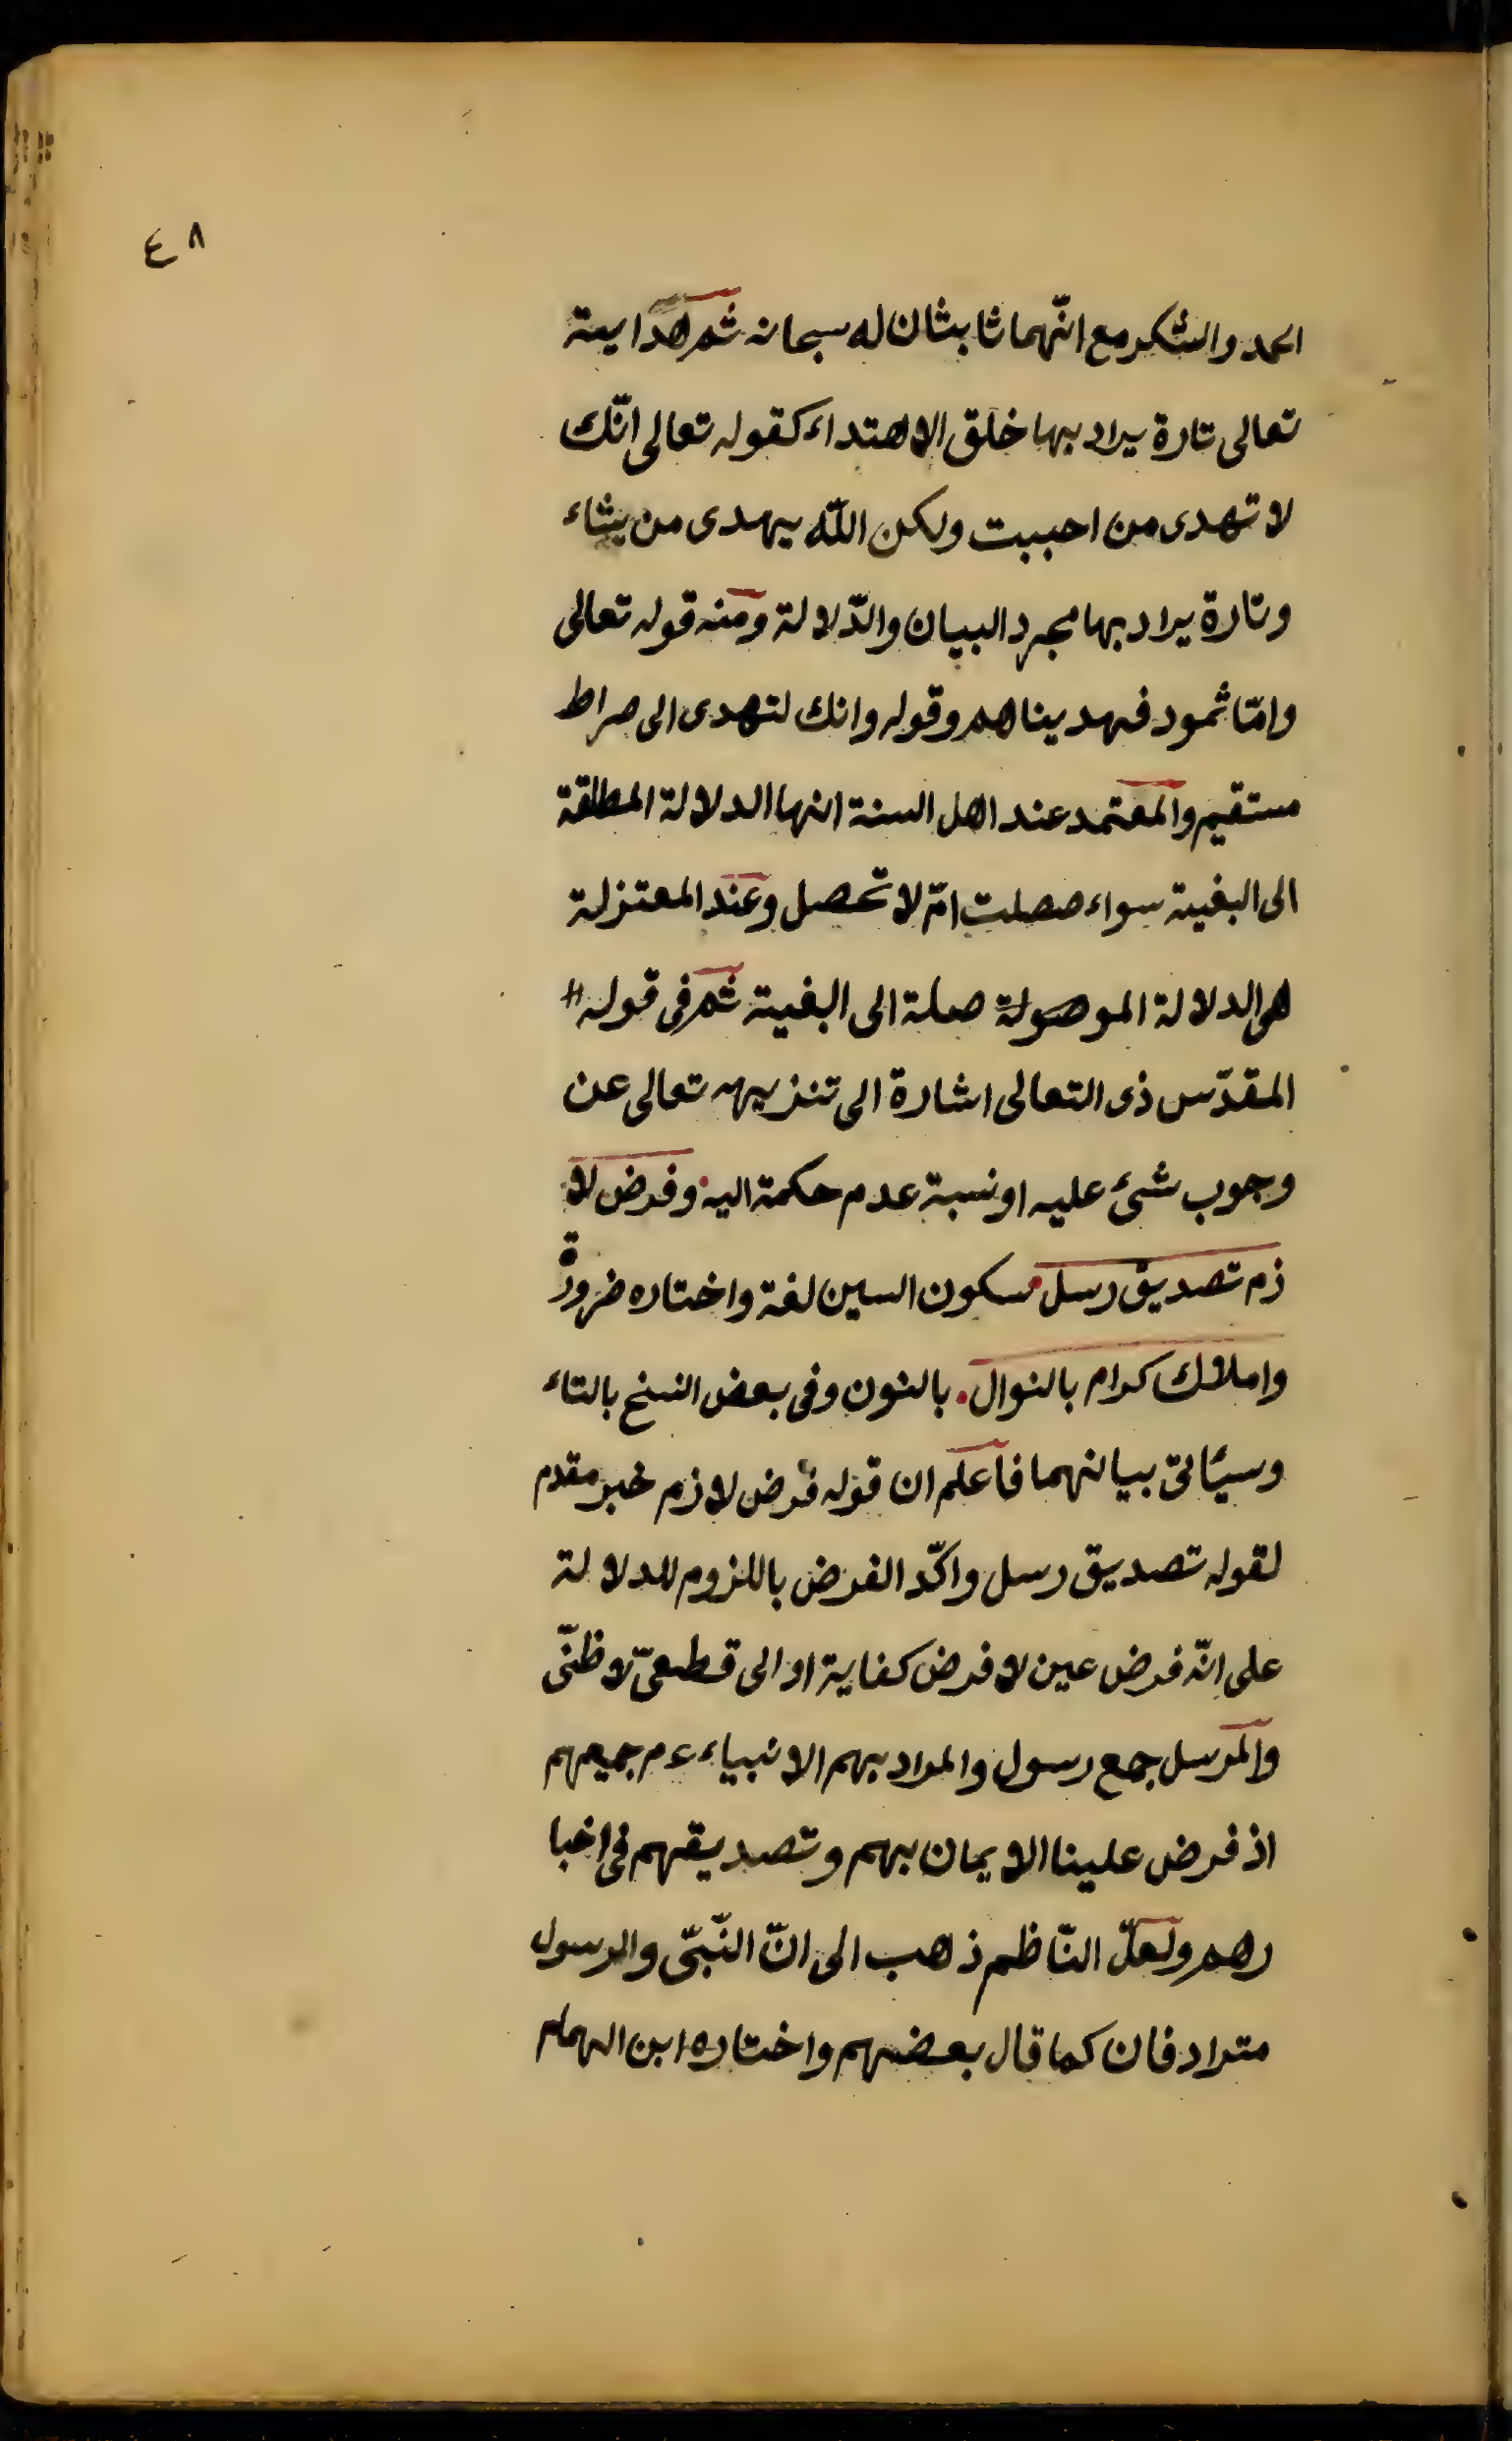 ٤٨
الحمد والشكر مع انّهما ثابثان له سبحانه ثم هدايته
تعالى تارة يراد بها خلق الاهتداء كقوله تعالى انّك
لا تهدى من احببت ولكن اللّه يهدى من يشاء
وتارة يراد بها مجرد البيان والدّلالة ومنه قوله تعالى
وامّا ثمود فهديناهم وقوله وانك لتهدى الى صراط
مستقيم والمعتمد عند اهل السنة انها الدلالة المطلقة
الى البغية سواء حصلت امّ لا تحصل وعند المعتزلة
هى الدلالة الموصولة صلة الى البغية ثم فى قوله
المقدّس ذى التعالى اشارة الى تنزيهه تعالى عن
وجوب شئ عليه او نسبة عدم حكمة اليه وفرض لا
زم تصديق رسل سكون السين لغة واختاره ضرورة
واملاك كرام بالنوال. بالنون وفى بعض النسخ بالتاء
وسيأتى بيانهما فاعلم ان قوله فرض لازم خبر مقدم
لقوله تصديق رسل واكّد الفرض باللزوم للدلالة
على انّه فرض عين لا فرض كفاية او الى قطعىّ لا ظنّى
والمرسل جمع رسول والمراد بهم الانبياء عم جميعهم
اذ فرض علينا الايمان بهم وتصديقهم فى اخبا
رهم ولعلّ النّاظم ذهب الى انّ النّبىّ والرسول
مترادفان كما قال بعضهم واختاره ابن الهمام